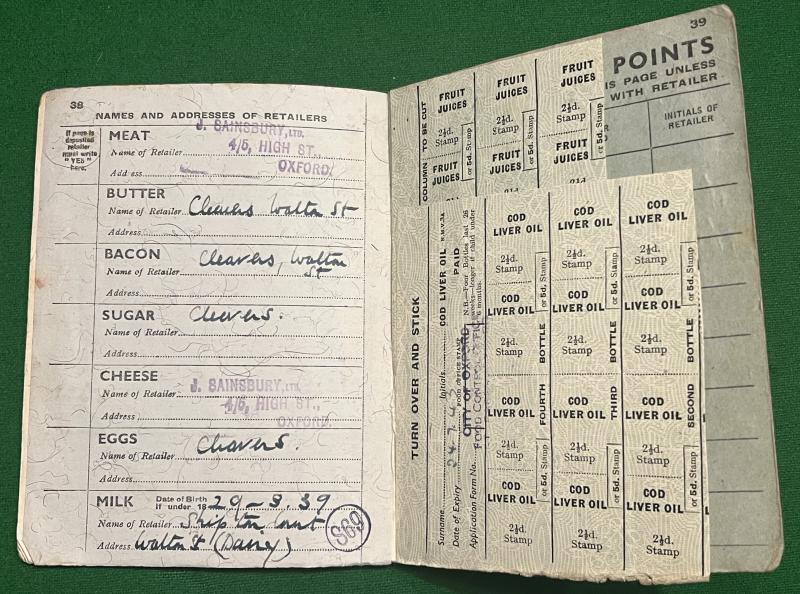 38
NAMES AND ADDRESSES OF RETAILERS
If page is
deposited
retailer
must write
"YES"
here.
MEAT
J. SAINSBURY, LTD.
4/5, HIGH ST.,
OXFORD.
Name of Retailer
Address
BUTTER
Name of Retailer Cleavers Walton St
Address
BACON
Name of Retailer Cleavers, Walton St
Address
SUGAR
Name of Retailer Cleavers.
Address
CHEESE
J. SAINSBURY, LTD.
4/5, HIGH ST.,
OXFORD.
Name of Retailer
Address
EGGS
Name of Retailer Cleavers.
Address
MILK Date of Birth if under 18 29-8.39
Name of Retailer
Address Walton St (Dairy)
39
POINTS
IS PAGE UNLESS
WITH RETAILER
INITIALS OF
RETAILER
COLUMN TO BE CUT
FRUIT JUICES FRUIT JUICES FRUIT JUICES
2½d. Stamp 2½d. Stamp 2½d. Stamp
or 5d. Stamp or 5d. Stamp or 5d. Stamp
FRUIT JUICES FRUIT JUICES FRUIT JUICES
TURN OVER AND STICK
Surname Initials COD LIVER OIL R.M.V.3A
Date of Expiry FOOD OFFICE STAMP PAID
Application Form No. CITY OF OXFORD
FOOD CONTROL
N.B.—Four Bottles last 26
weeks—longer if child under
6 months.
COD LIVER OIL COD LIVER OIL COD LIVER OIL
2½d. Stamp 2½d. Stamp 2½d. Stamp
or 5d. Stamp or 5d. Stamp or 5d. Stamp
COD LIVER OIL COD LIVER OIL COD LIVER OIL
2½d. Stamp 2½d. Stamp 2½d. Stamp
FOURTH BOTTLE THIRD BOTTLE SECOND BOTTLE
COD LIVER OIL COD LIVER OIL COD LIVER OIL
2½d. Stamp 2½d. Stamp 2½d. Stamp
or 5d. Stamp or 5d. Stamp or 5d. Stamp
COD LIVER OIL COD LIVER OIL COD LIVER OIL
2½d. Stamp 2½d. Stamp 2½d. Stamp